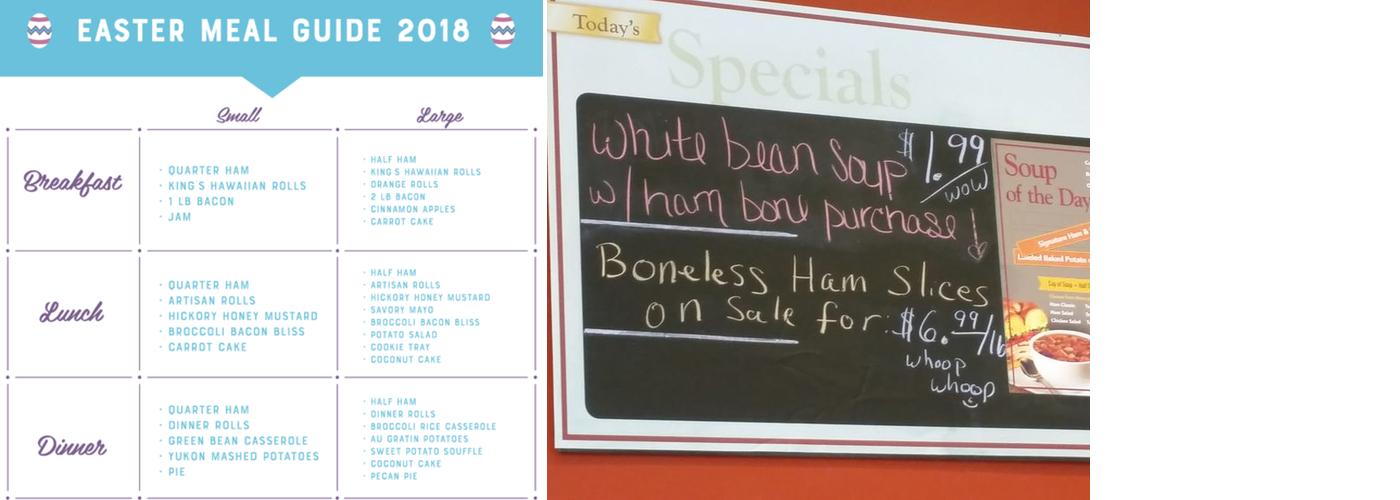 EASTER MEAL GUIDE 2018
Small
Large
Breakfast
· QUARTER HAM
· KING'S HAWAIIAN ROLLS
· 1 LB BACON
· JAM
· HALF HAM
· KING'S HAWAIIAN ROLLS
· ORANGE ROLLS
· 2 LB BACON
· CINNAMON APPLES
· CARROT CAKE
Lunch
· QUARTER HAM
· ARTISAN ROLLS
· HICKORY HONEY MUSTARD
· BROCCOLI BACON BLISS
· CARROT CAKE
· HALF HAM
· ARTISAN ROLLS
· HICKORY HONEY MUSTARD
· SAVORY MAYO
· BROCCOLI BACON BLISS
· POTATO SALAD
· COOKIE TRAY
· COCONUT CAKE
Dinner
· QUARTER HAM
· DINNER ROLLS
· GREEN BEAN CASSEROLE
· YUKON MASHED POTATOES
· PIE
· HALF HAM
· DINNER ROLLS
· BROCCOLI RICE CASSEROLE
· AU GRATIN POTATOES
· SWEET POTATO SOUFFLE
· COCONUT CAKE
· PECAN PIE
Today's
Specials
White bean Soup $1.99
wow
w/ ham bone purchase!
Boneless Ham Slices
on Sale for: $6.99/lb
whoop
whoop
Soup
of the Day
Signature Ham &
Loaded Baked Potato
Ham Classic
Ham Salad
Chicken Salad